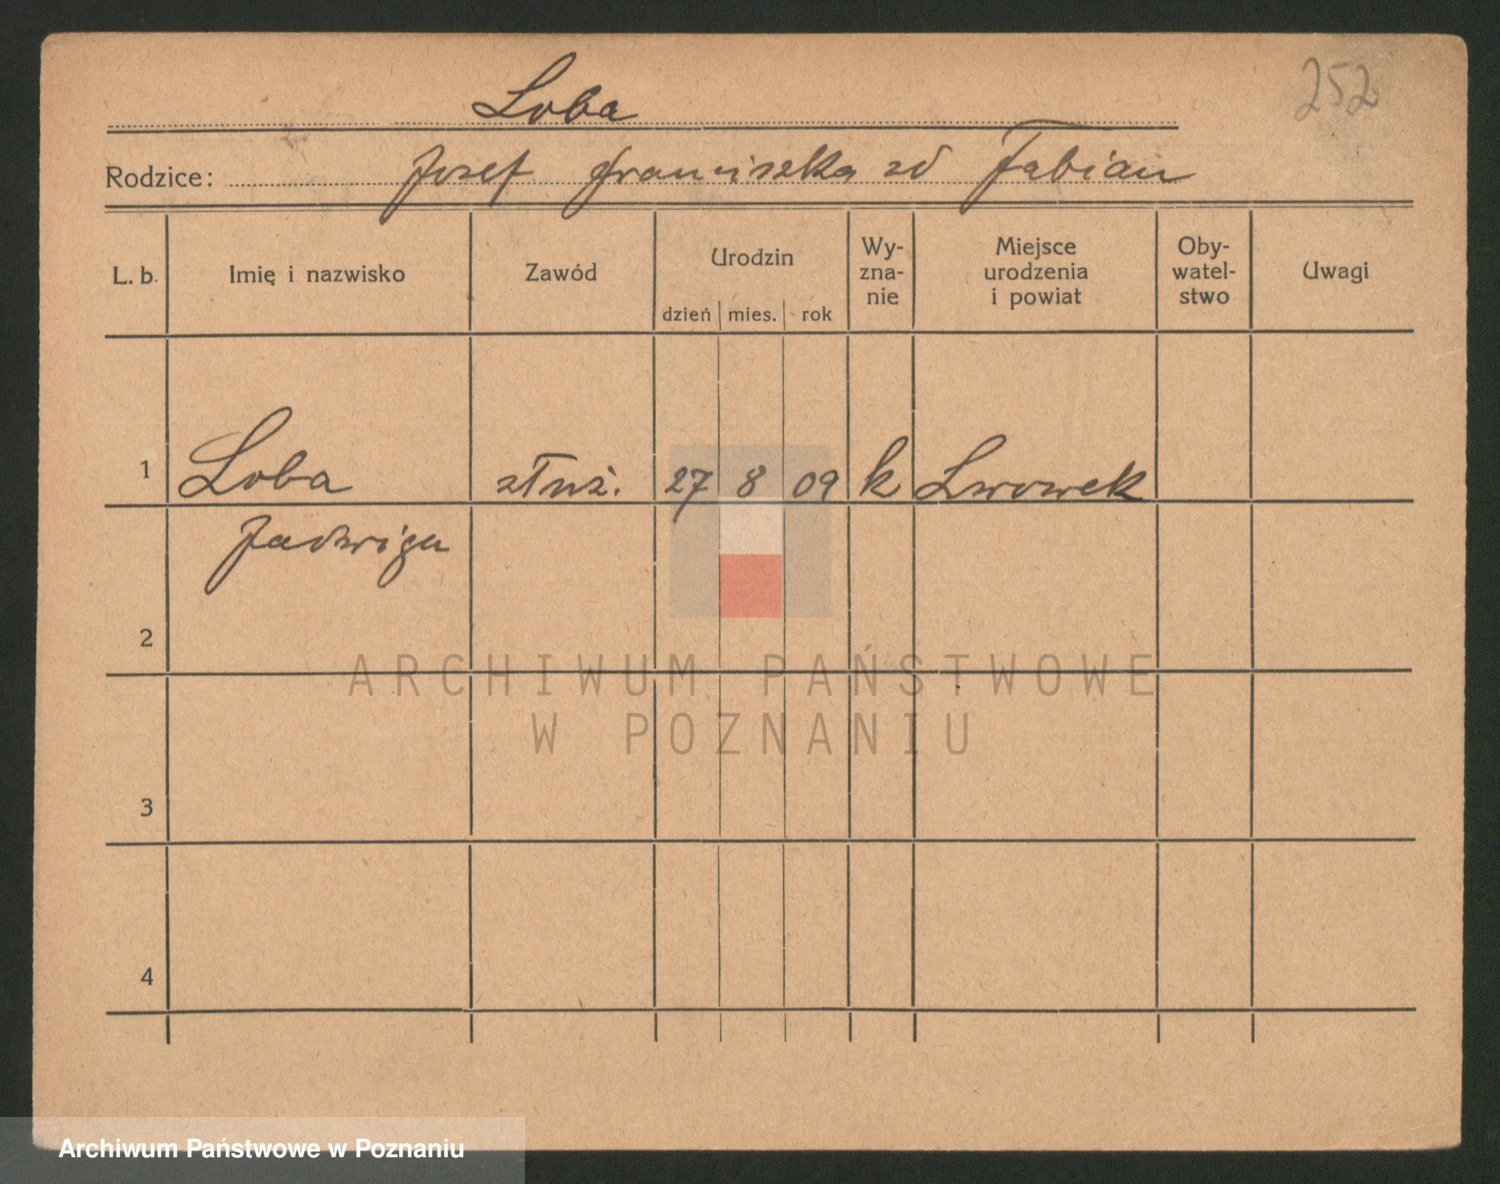 252
Loba
Rodzice: Josef Franciszka zd Fabian
L. b. Imię i nazwisko Zawód Urodzin dzień mies. rok Wy-zna-nie Miejsce urodzenia i powiat Oby-watel-stwo Uwagi
1 Loba służ. 27 8 09 k Lwowek
Jadwiga
2
ARCHIWUM PAŃSTWOWE
W POZNANIU
3
4
Archiwum Państwowe w Poznaniu